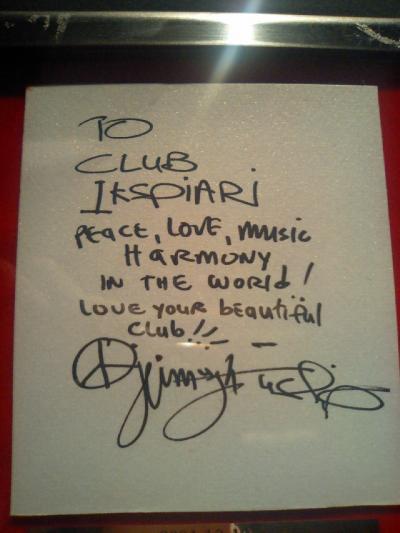 TO
CLUB
IKSPIARI
PEACE, LOVE, MUSIC
HARMONY
IN THE WORLD!
LOVE YOUR beautiful
CLUB!!